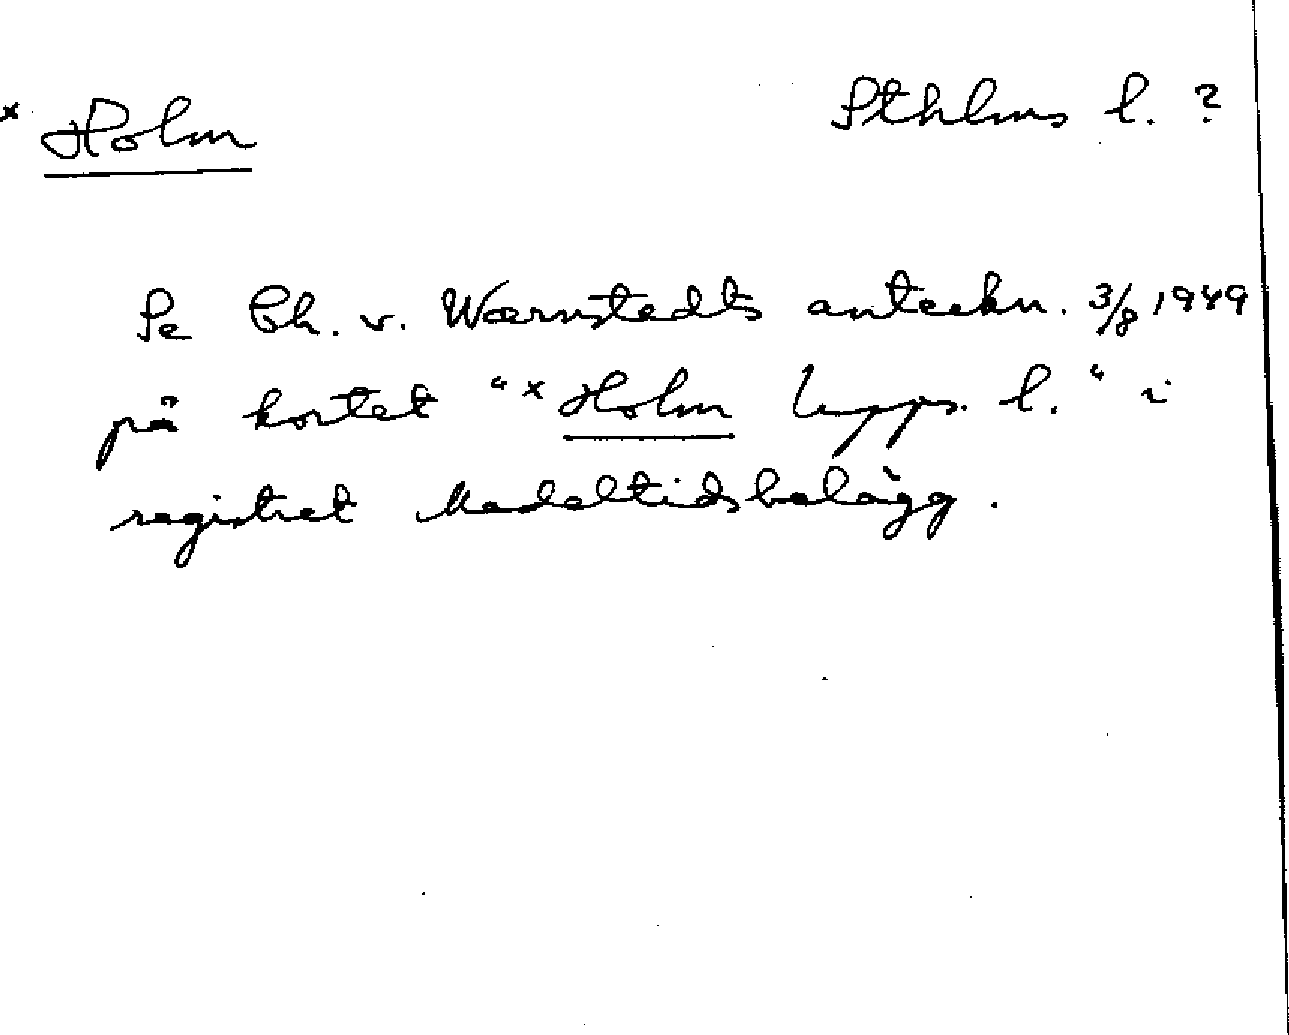 × Holm Sthlms l. ?
Se Ch. v. Wærnstedts anteckn. 3/8 1949
på kortet "× Holm Upps. l." i
registret Medeltidsbelägg.